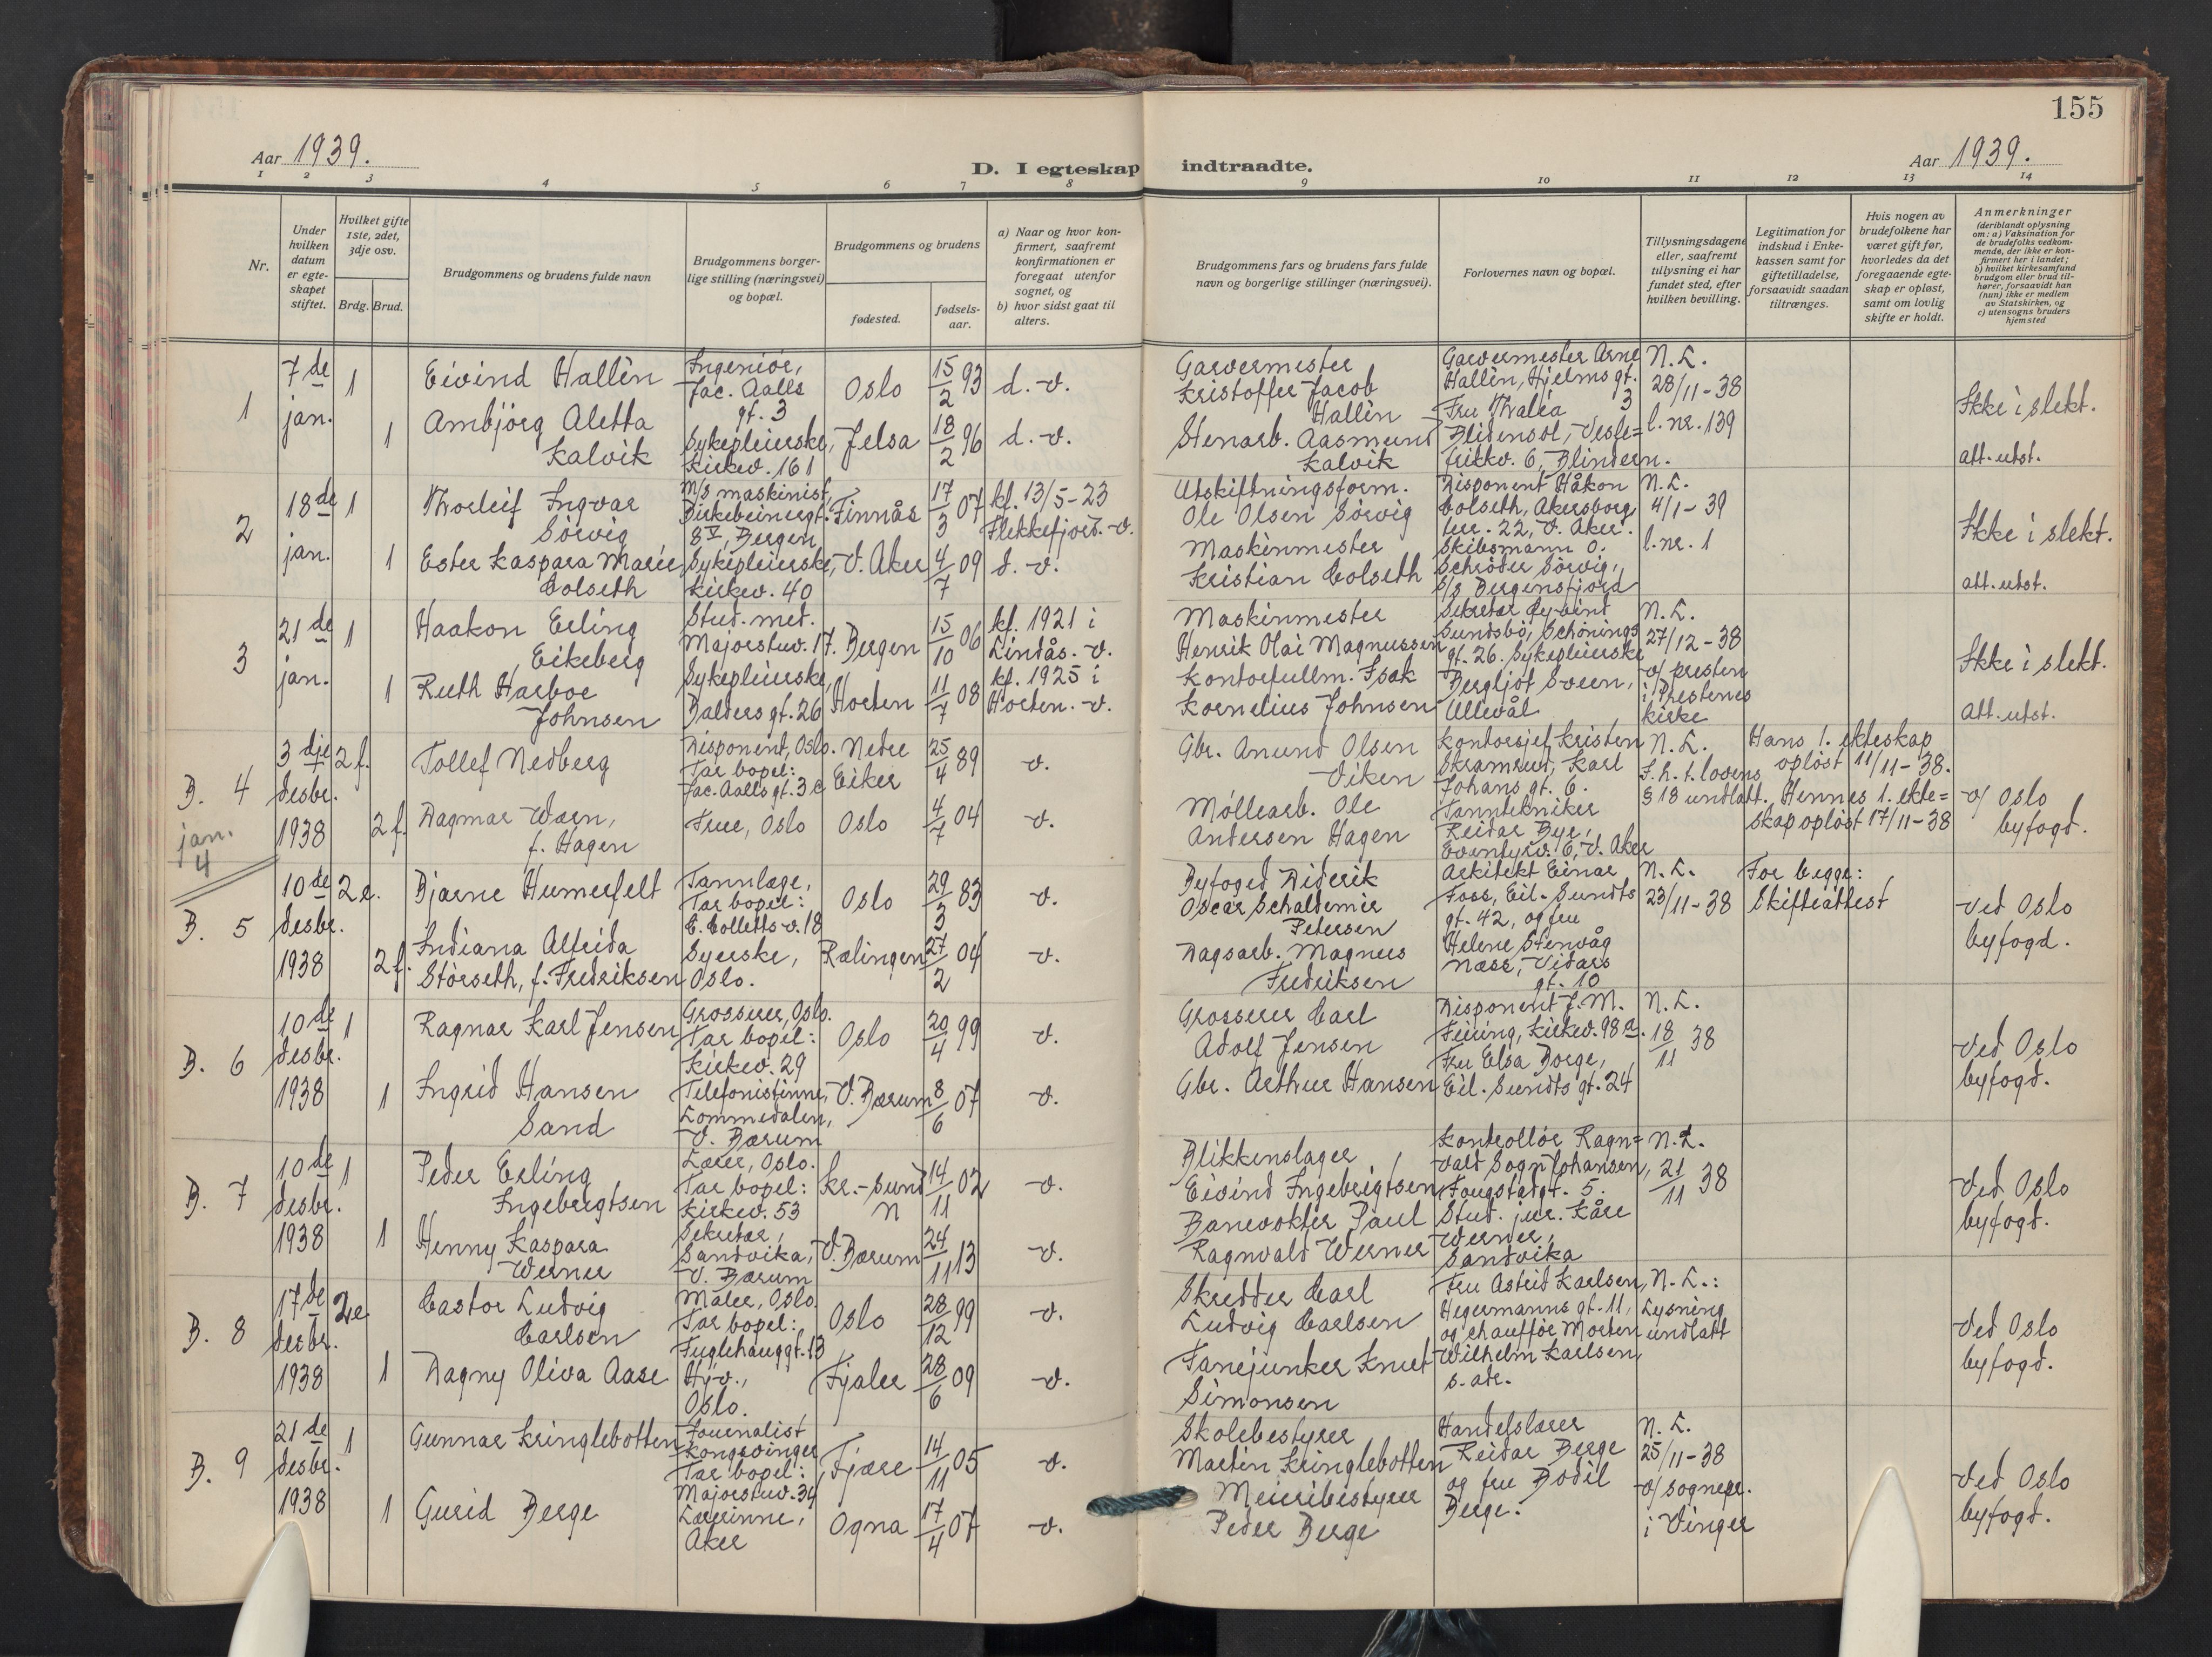 155
Aar 1939.
D. I egteskap indtraadte.
Aar 1939.
1 2 3 4 5 6 7 8 9 10 11 12 13 14
Nr.
Under hvilken datum er egteskapet stiftet.
Hvilket gifte 1ste, 2det, 3dje osv.
Brdg. Brud.
Brudgommens og brudens fulde navn
Brudgommens borgerlige stilling (næringsvei) og bopæl.
Brudgommens og brudens
fødested.
fødselsaar.
a) Naar og hvor konfirmert, saafremt konfirmationen er foregaat utenfor sognet, og
b) hvor sidst gaat til alters.
Brudgommens fars og brudens fars fulde navn og borgerlige stillinger (næringsvei).
Forlovernes navn og bopæl.
Tillysningsdagene eller, saafremt tillysning ei har fundet sted, efter hvilken bevilling.
Legitimation for indskud i Enkekassen samt for giftetilladelse, forsaavidt saadan tiltrænges.
Hvis nogen av brudefolkene har været gift før, hvorledes da det foregaaende egteskap er opløst, samt om lovlig skifte er holdt.
Anmerkninger
(deriblandt oplysning om: a) Vaksination for de brudefolks vedkommende, der ikke er konfirmert her i landet;
b) hvilket kirkesamfund brudgom eller brud tilhører, forsaavidt han (hun) ikke er medlem av Statskirken, og
c) utensogns bruders hjemsted
1
7de jan.
1
Eivind Hallèn
Ingeniør,
Jac. Aalls
gt. 3
Oslo
15/2 93
d. v.
Garvermester
Kristoffer Jacob
Hallèn
Garvermester Arne
Hallèn, Hjelms gt.
3
N. L.
28/11-38
l. nr. 139
Ikke i slekt.
1
Ambjörg Aletta
Kalvik
Sykepleierske,
Kirkev. 161
Jelsa
18/2 96
d. v.
Stenarb. Aasmund
Kalvik
Fru Thalea
Blidensol, Vestre=
frikkv. 6, Blindern.
att. utst.
2
18de jan.
1
Thorleif Ingvar
Sörvig
M/s maskinist,
Birkebeinergt.
8 V, Bergen
Finnås
17/3 07
kf. 13/5-23
Flekkefjord. v.
Utskiftningsform.
Ole Olsen Sörvig
Disponent Håkon
Colseth, Akersborg
terr. 22, V. Aker.
N. L.
4/1-39
l. nr. 1
Ikke i slekt.
1
Ester Kaspara Marie
Colseth
Sykepleierske,
Kirkev. 40
V. Aker
4/7 09
d. v.
Maskinmester
Kristian Colseth
Skibsmann O.
Schröder Sörvig,
S/s Bergensfjord
att. utst.
3
21de jan.
1
Haakon Erling
Eikeberg
Stud. med.
Majorstuv. 17.
Bergen
15/10 06
kf. 1921 i
Lindås. v.
Maskinmester
Henrik Olai Magnussen
Sekretær Øyvind
Sundsbö, Schönings
gt. 26. Sykepleierske
N. L.
27/12-38
v/ presten
i Presternes
kirke
Ikke i slekt.
1
Ruth Harboe
Johnsen
Sykepleierske,
Balders gt. 26
Horten
11/7 08
kf. 1925 i
Horten. v.
Kontorfullm. Isak
Kornelius Johnsen
Bergljot Sveen,
Ullevål
att. utst.
B. 4
jan.
4
3dje desbr. 1938
2 f.
Tollef Nedberg
Disponent, Oslo.
Tar bopel:
Jac. Aalls gt. 3 c
Nedre
Eiker
25/4 89
v.
Gbr. Anund Olsen
Viken
Kontorsjef Kristen
Skramrud, Karl
Johans gt. 6.
N. L.
F. h. t. lovens
§ 18 undlatt.
Hans 1. ekteskap
opløst 11/11-38.
Hennes 1. ekte=
skap opløst 17/11-38
v/ Oslo
byfogd.
2 f.
Dagmar Wærn,
f. Hagen
Frue, Oslo
Oslo
4/7 04
v.
Møllearb. Ole
Andersen Hagen
Tanntekniker
Reidar Bye,
Eventyrv. 6, V. Aker
B. 5
10de desbr. 1938
2 e.
Bjarne Humerfelt
Tannlæge,
Tar bopel:
C. Colletts v. 18
Oslo
29/3 83
v.
Byfoged Diderik
Oscar Schaltemir
Petersen
Arkitekt Einar
Foss, Eil. Sundts
gt. 42, og fru
N. L.
23/11-38
For begge:
Skifteattest
Ved Oslo
byfogd.
2 f.
Indiana Alfrida
Störseth, f. Fredriksen
Syerske,
Oslo.
Rælingen
27/2 04
v.
Dagsarb. Magnus
Fredriksen
Helene Stenvåg
Næss, Vidars
gt. 10
B. 6
10de desbr. 1938
1
Ragnar Karl Jensen
Grosserer, Oslo.
Tar bopel:
Kirkev. 29
Oslo
20/4 99
v.
Grosserer Carl
Adolf Jensen
Disponent J. M.
Feiring, Kirkev. 98 a.
N. L.
18/11 38
Ved Oslo
byfogd.
1
Ingrid Hansen
Sand
Telefonistinne,
Lommedalen,
V. Bærum
V. Bærum
8/6 07
v.
Gbr. Arthur Hansen
Fru Elsa Dorge,
Eil. Sundts gt. 24
B. 7
10de desbr. 1938
1
Peder Erling
Ingebrigtsen
Lærer, Oslo.
Tar bopel:
Kirkev. 53
Kr.-sund
N
14/11 02
v.
Blikkenslager
Eivind Ingebrigtsen
Kontrollör Ragn=
vald Sogn Johansen,
Fougstadgt. 5.
N. L.
21/11 38
Ved Oslo
byfogd.
1
Henny Kaspara
Werner
Sekretær,
Sandvika,
V. Bærum
V. Bærum
24/11 13
v.
Banevokter Paul
Ragnvald Werner
Stud. jur. Kåre
Werner,
Sandvika
B. 8
17de desbr. 1938
2 e
Castor Ludvig
Carlsen
Maler, Oslo.
Tar bopel:
Fuglehauggt. 13
Oslo
28/12 99
v.
Skredder Carl
Ludvig Carlsen
Fru Astrid Karlsen,
Hegermanns gt. 11,
og chauffør Morten
N. L.:
Lysning
undlatt
Ved Oslo
byfogd.
1
Dagny Oliva Aase
Hj.v.,
Oslo.
Fjaler
28/6 09
v.
Fanejunker Knut
Simonsen
Wilhelm Karlsen,
s. adr.
B. 9
21de desbr. 1938
1
Gunnar Kringlebotten
Journalist
Kongsvinger
Tar bopel:
Majorstuv. 34
Fjære
14/11 05
v.
Skolebestyrer
Martin Kringlebotten
Handelslærer
Reidar Berge
og fru Bodil
Berge.
N. L.
25/11-38
v/ sognepr.
i Vinger
Ved Oslo
byfogd.
1
Gurid Berge
Lærerinne,
Aker
Ogna
17/4 07
v.
Meieribestyrer
Peder Berge